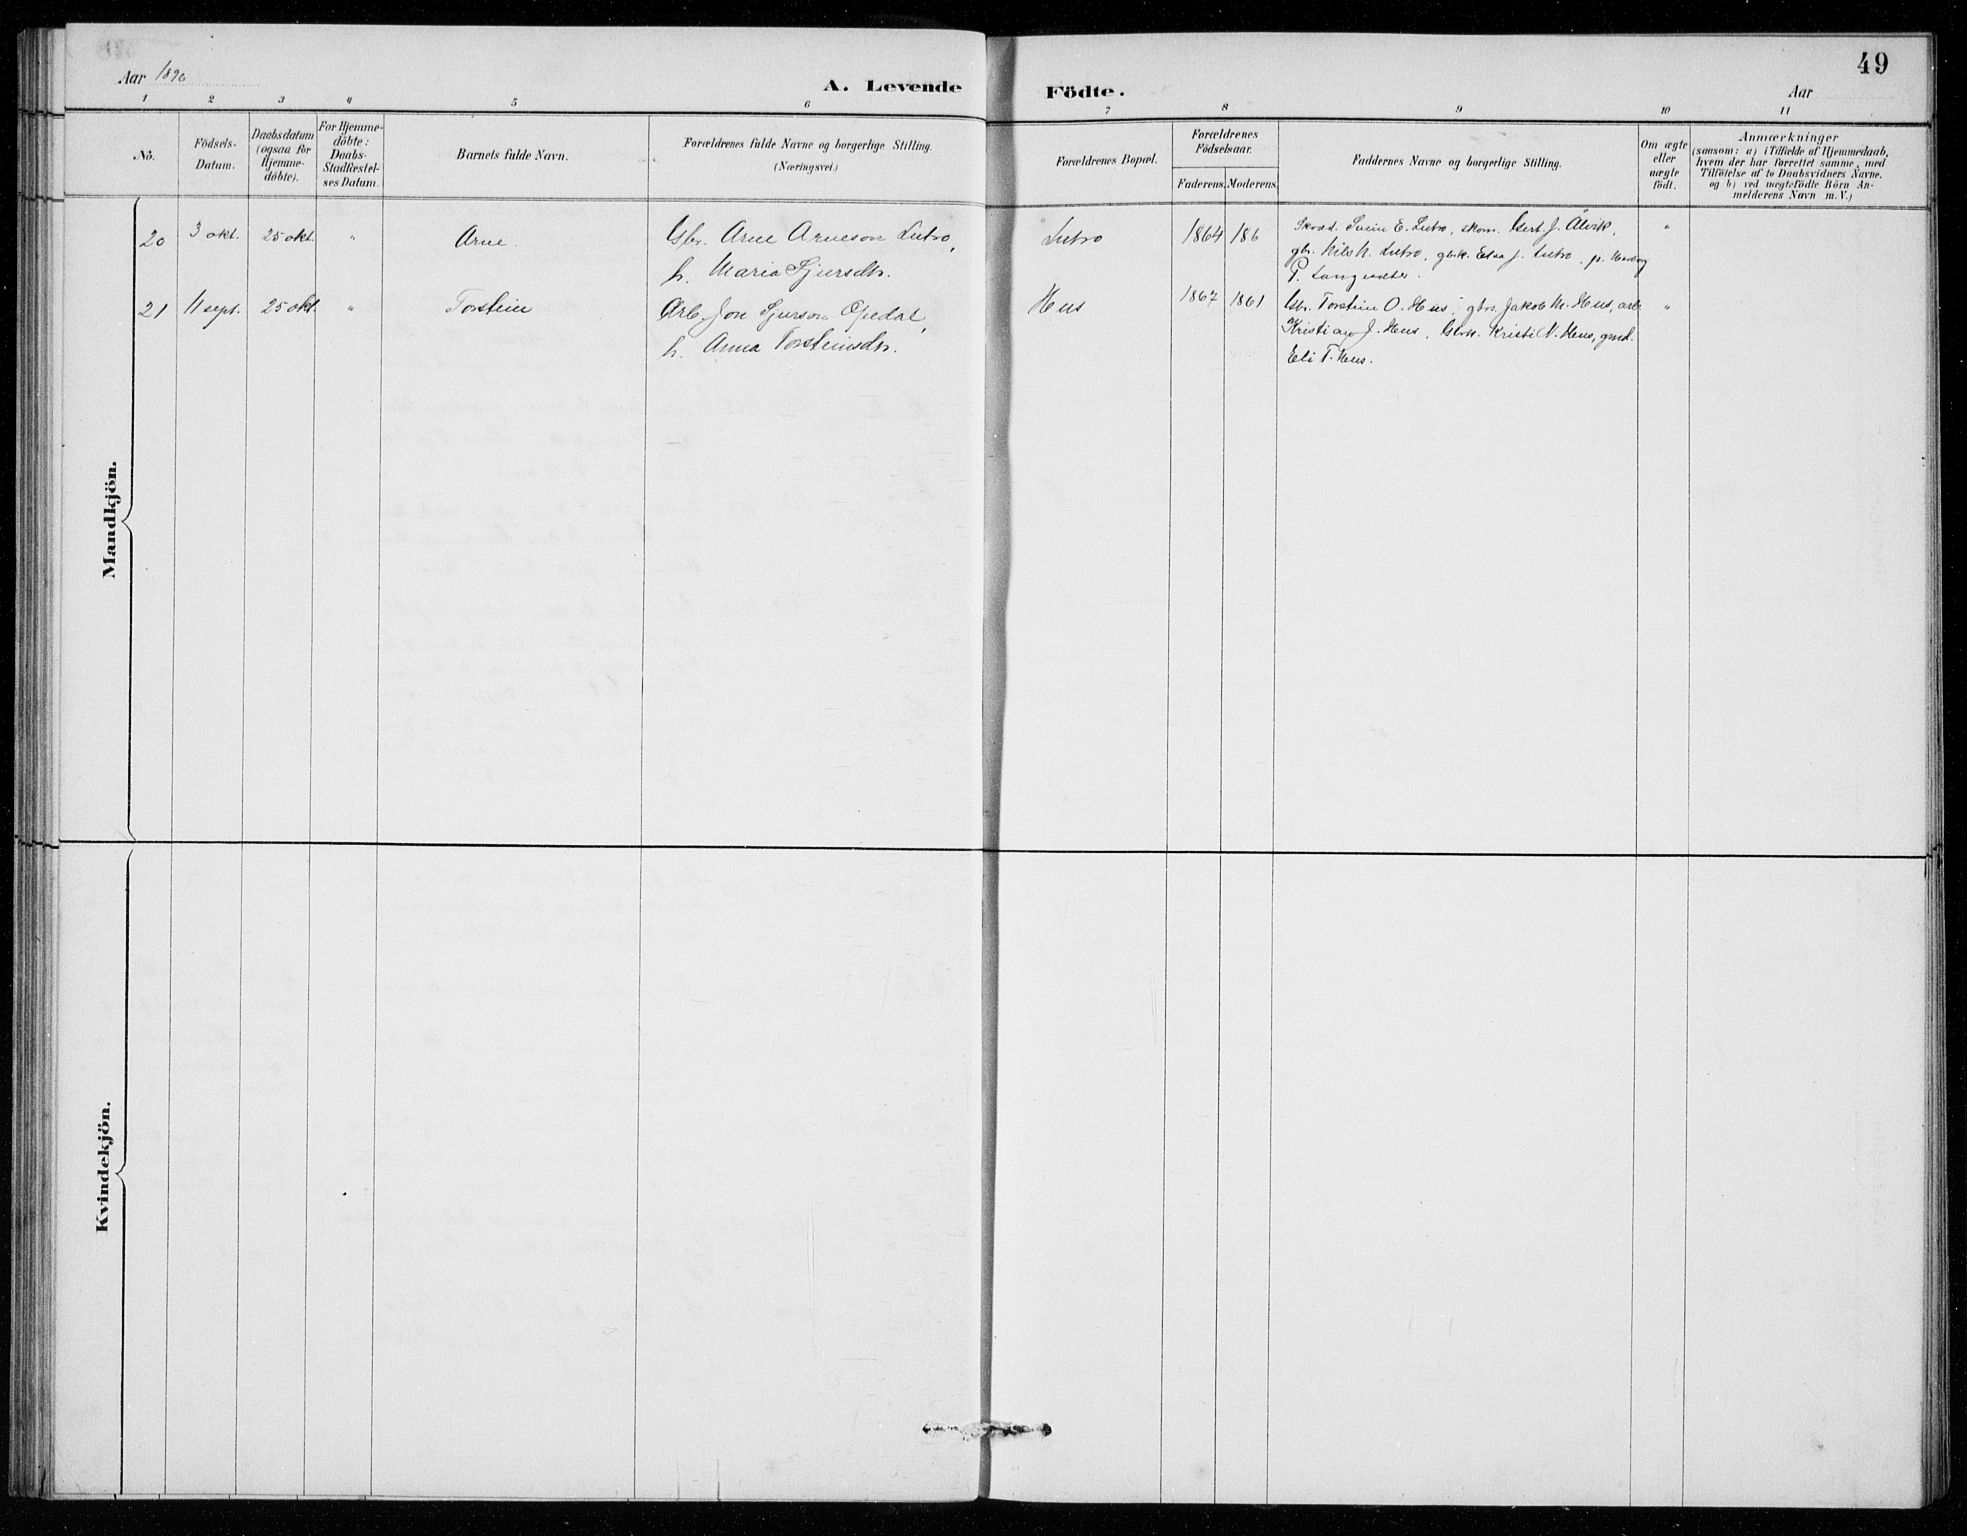 49
Aar 1896
A. Levende Födte.
Aar
1 2 3 4 5 6 7 8 9 10 11
No.
Födsels-Datum.
Daabsdatum (ogsaa for Hjemme-döbte).
For Hjemme-döbte: Daabs-Stadfæstel-ses Datum.
Barnets fulde Navn.
Forældrenes fulde Navne og borgerlige Stilling.
(Næringsvei.)
Forældrenes Bopæl.
Forældrenes Födselsaar.
Faderens. Moderens.
Faddernes Navne og borgerlige Stilling.
Om ægte eller uægte födt.
Anmærkninger
(saasom: a) i Tilfælde af Hjemmedaab,
hvem der har forrettet samme, med
Tilföielse af to Daabsvidners Navne.
og b) ved uægtefödte Börn An-
melderens Navn m.V.)
Mandkjön.
20 3 okt. 25 okt. " Arne. Gbr. Arne Arneson Lutro,
h. Maria Sjursdtr.
Lutro 1864 186
Svein E. Lutro, skom. Gert J. Ålvik,
gbr. Nils N. Lutro, gbk. J. Lutro, p.
P. "
21 11 sept. 25 okt. " Torstein Arb. Jon Sjurson Opedal,
h. Anna Torsteinsdtr.
Hus 1867 1861
Gbr. Torstein O. Hus, gbr. Jakob M. Hus, arb.
J. Hus, Gbk. Kristi N. Hus,
Eli T. Hus. "
Kvindekjön.